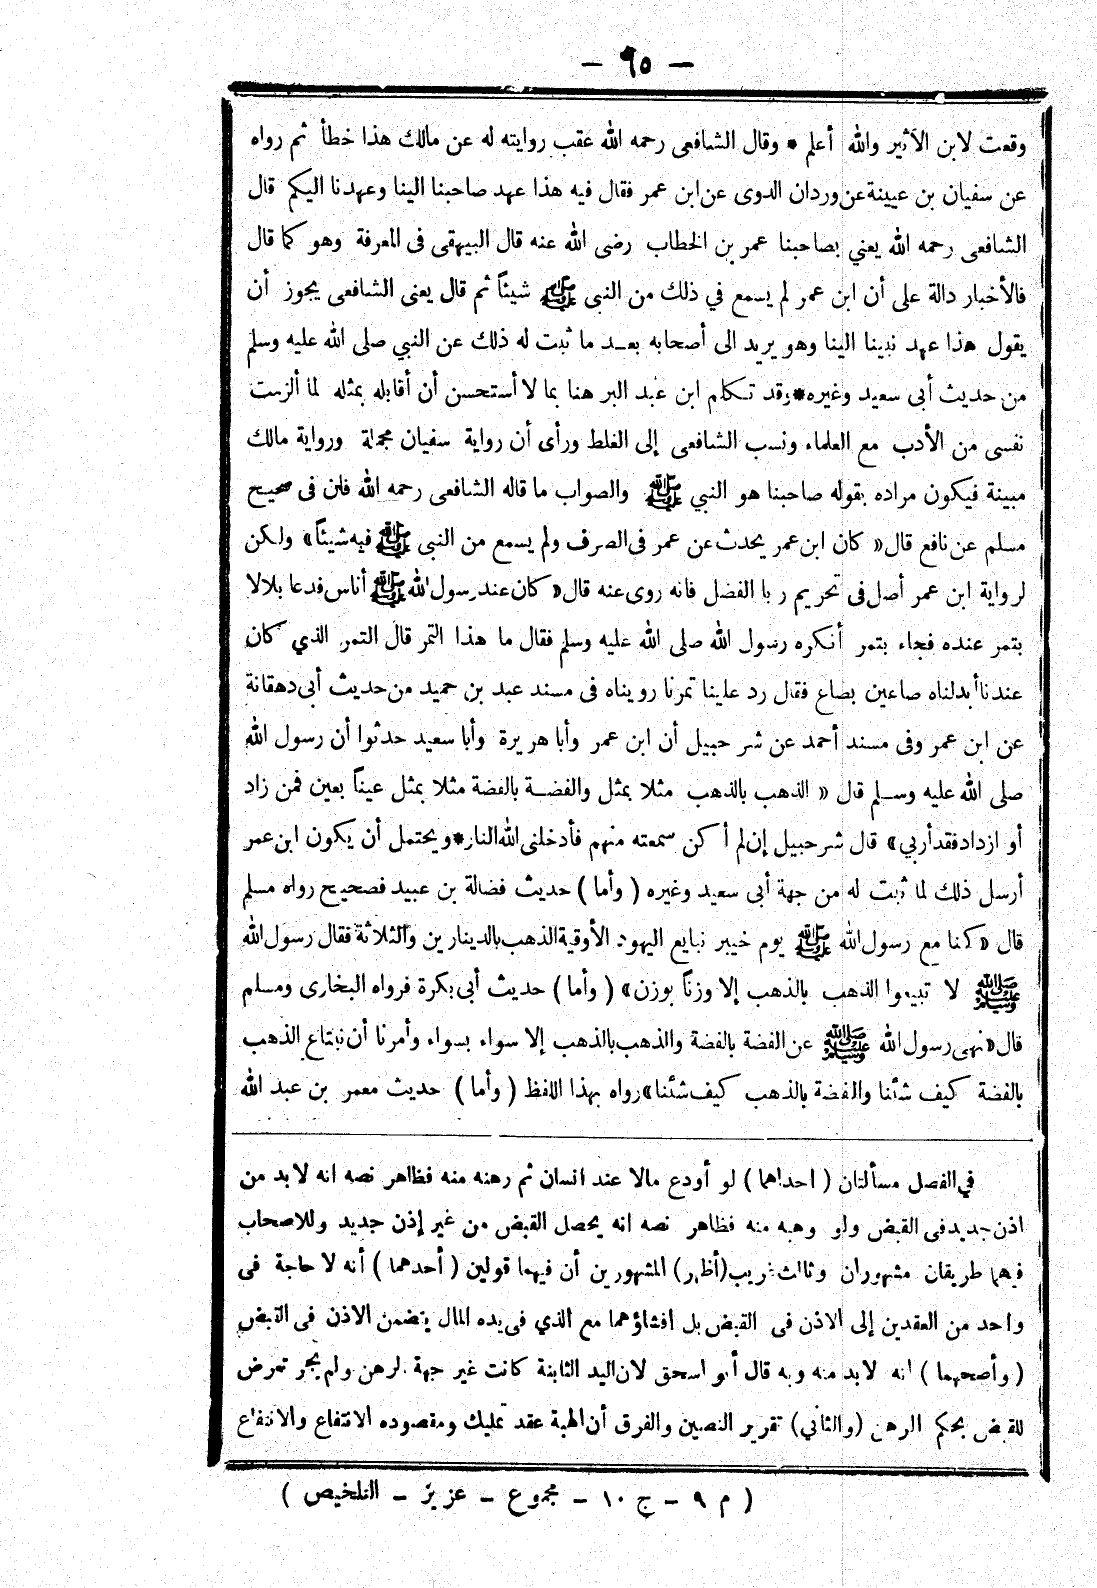 — ٦٥ —
وقعت لابن الأثير والله أعلم * وقال الشافعى رحمه الله عقب روايته له عن مالك هذا خطأ ثم رواه
عن سفيان بن عيينة عن وردان الدوى عن ابن عمر فقال فيه هذا عهد صاحبنا الينا وعهدنا اليكم قال
الشافعى رحمه الله يعني بصاحبنا عمر بن الخطاب رضى الله عنه قال البيهقى فى المعرفة وهو كما قال
فالأخبار دالة على أن ابن عمر لم يسمع في ذلك من النبى ﷺ شيئاً ثم قال يعنى الشافعى يجوز أن
يقول هذا عهد نبينا الينا وهو يريد الى أصحابه بعد ما ثبت له ذلك عن النبي صلى الله عليه وسلم
من حديث أبى سعيد وغيره * وقد تكلم ابن عبد البر هنا بما لا أستحسن أن أقابله بمثله لما ألزمت
نفسى من الأدب مع العلماء ونسب الشافعى إلى الغلط ورأى أن رواية سفيان مجملة ورواية مالك
مبينة فيكون مراده بقوله صاحبنا هو النبي ﷺ والصواب ما قاله الشافعى رحمه الله فان فى صحيح
مسلم عن نافع قال « كان ابن عمر يحدث عن عمر فى الصرف ولم يسمع من النبى ﷺ فيه شيئاً » ولكن
لرواية ابن عمر أصل فى تحريم ربا الفضل فانه روى عنه قال « كان عند رسول الله ﷺ أناس فدعا بلالا
بتمر عنده فجاء بتمر أنكره رسول الله صلى الله عليه وسلم فقال ما هذا التمر قال التمر الذي كان
عندنا أبدلناه صاعين بصاع فقال رد علينا تمرنا رويناه فى مسند عبد بن حميد من حديث أبى دهقانة
عن ابن عمر وفى مسند أحمد عن شرحبيل أن ابن عمر وأبا هريرة وأبا سعيد حدثوا أن رسول الله
صلى الله عليه وسلم قال « الذهب بالذهب مثلا بمثل والفضة بالفضة مثلا بمثل عيناً بعين فمن زاد
أو ازداد فقد أربي » قال شرحبيل إن لم أكن سمعته منهم فأدخلنى الله النار * ويحتمل أن يكون ابن عمر
أرسل ذلك لما ثبت له من جهة أبى سعيد وغيره ( وأما ) حديث فضالة بن عبيد فصحيح رواه مسلم
قال « كنا مع رسول الله ﷺ يوم خيبر نبايع اليهود الأوقية الذهب بالدينارين والثلاثة فقال رسول الله
ﷺ لا تبيعوا الذهب بالذهب إلا وزناً بوزن » ( وأما ) حديث أبى بكرة فرواه البخارى ومسلم
قال « نهى رسول الله ﷺ عن الفضة بالفضة والذهب بالذهب إلا سواء بسواء وأمرنا أن نبتاع الذهب
بالفضة كيف شئنا والفضة بالذهب كيف شئنا » رواه بهذا اللفظ ( وأما ) حديث معمر بن عبد الله
في الفصل مسألتان ( احداهما ) لو أودع مالا عند انسان ثم رهنه منه فظاهر نصه انه لا بد من
اذن جديد فى القبض ولو وهبه منه فظاهر نصه انه يحصل القبض من غير إذن جديد وللاصحاب
فيهما طريقان مشهوران وثالث غريب (أظهر) المشهورين أن فيهما قولين ( أحدهما ) أنه لا حاجة فى
واحد من العقدين إلى الاذن فى القبض بل انشاؤهما مع الذي فى يده المال يتضمن الاذن فى القبض
( وأصحهما ) انه لا بد منه وبه قال أبو اسحق لان اليد الثابتة كانت غير جهة الرهن ولم يجر تعرض
للقبض بحكم الرهن (والثانى) تقرير النصين والفرق أن الهبة عقد تمليك ومقصوده الانتفاع والانتفاع
( م ٩ - ج ١٠ - مجموع - عزيز - التلخيص )